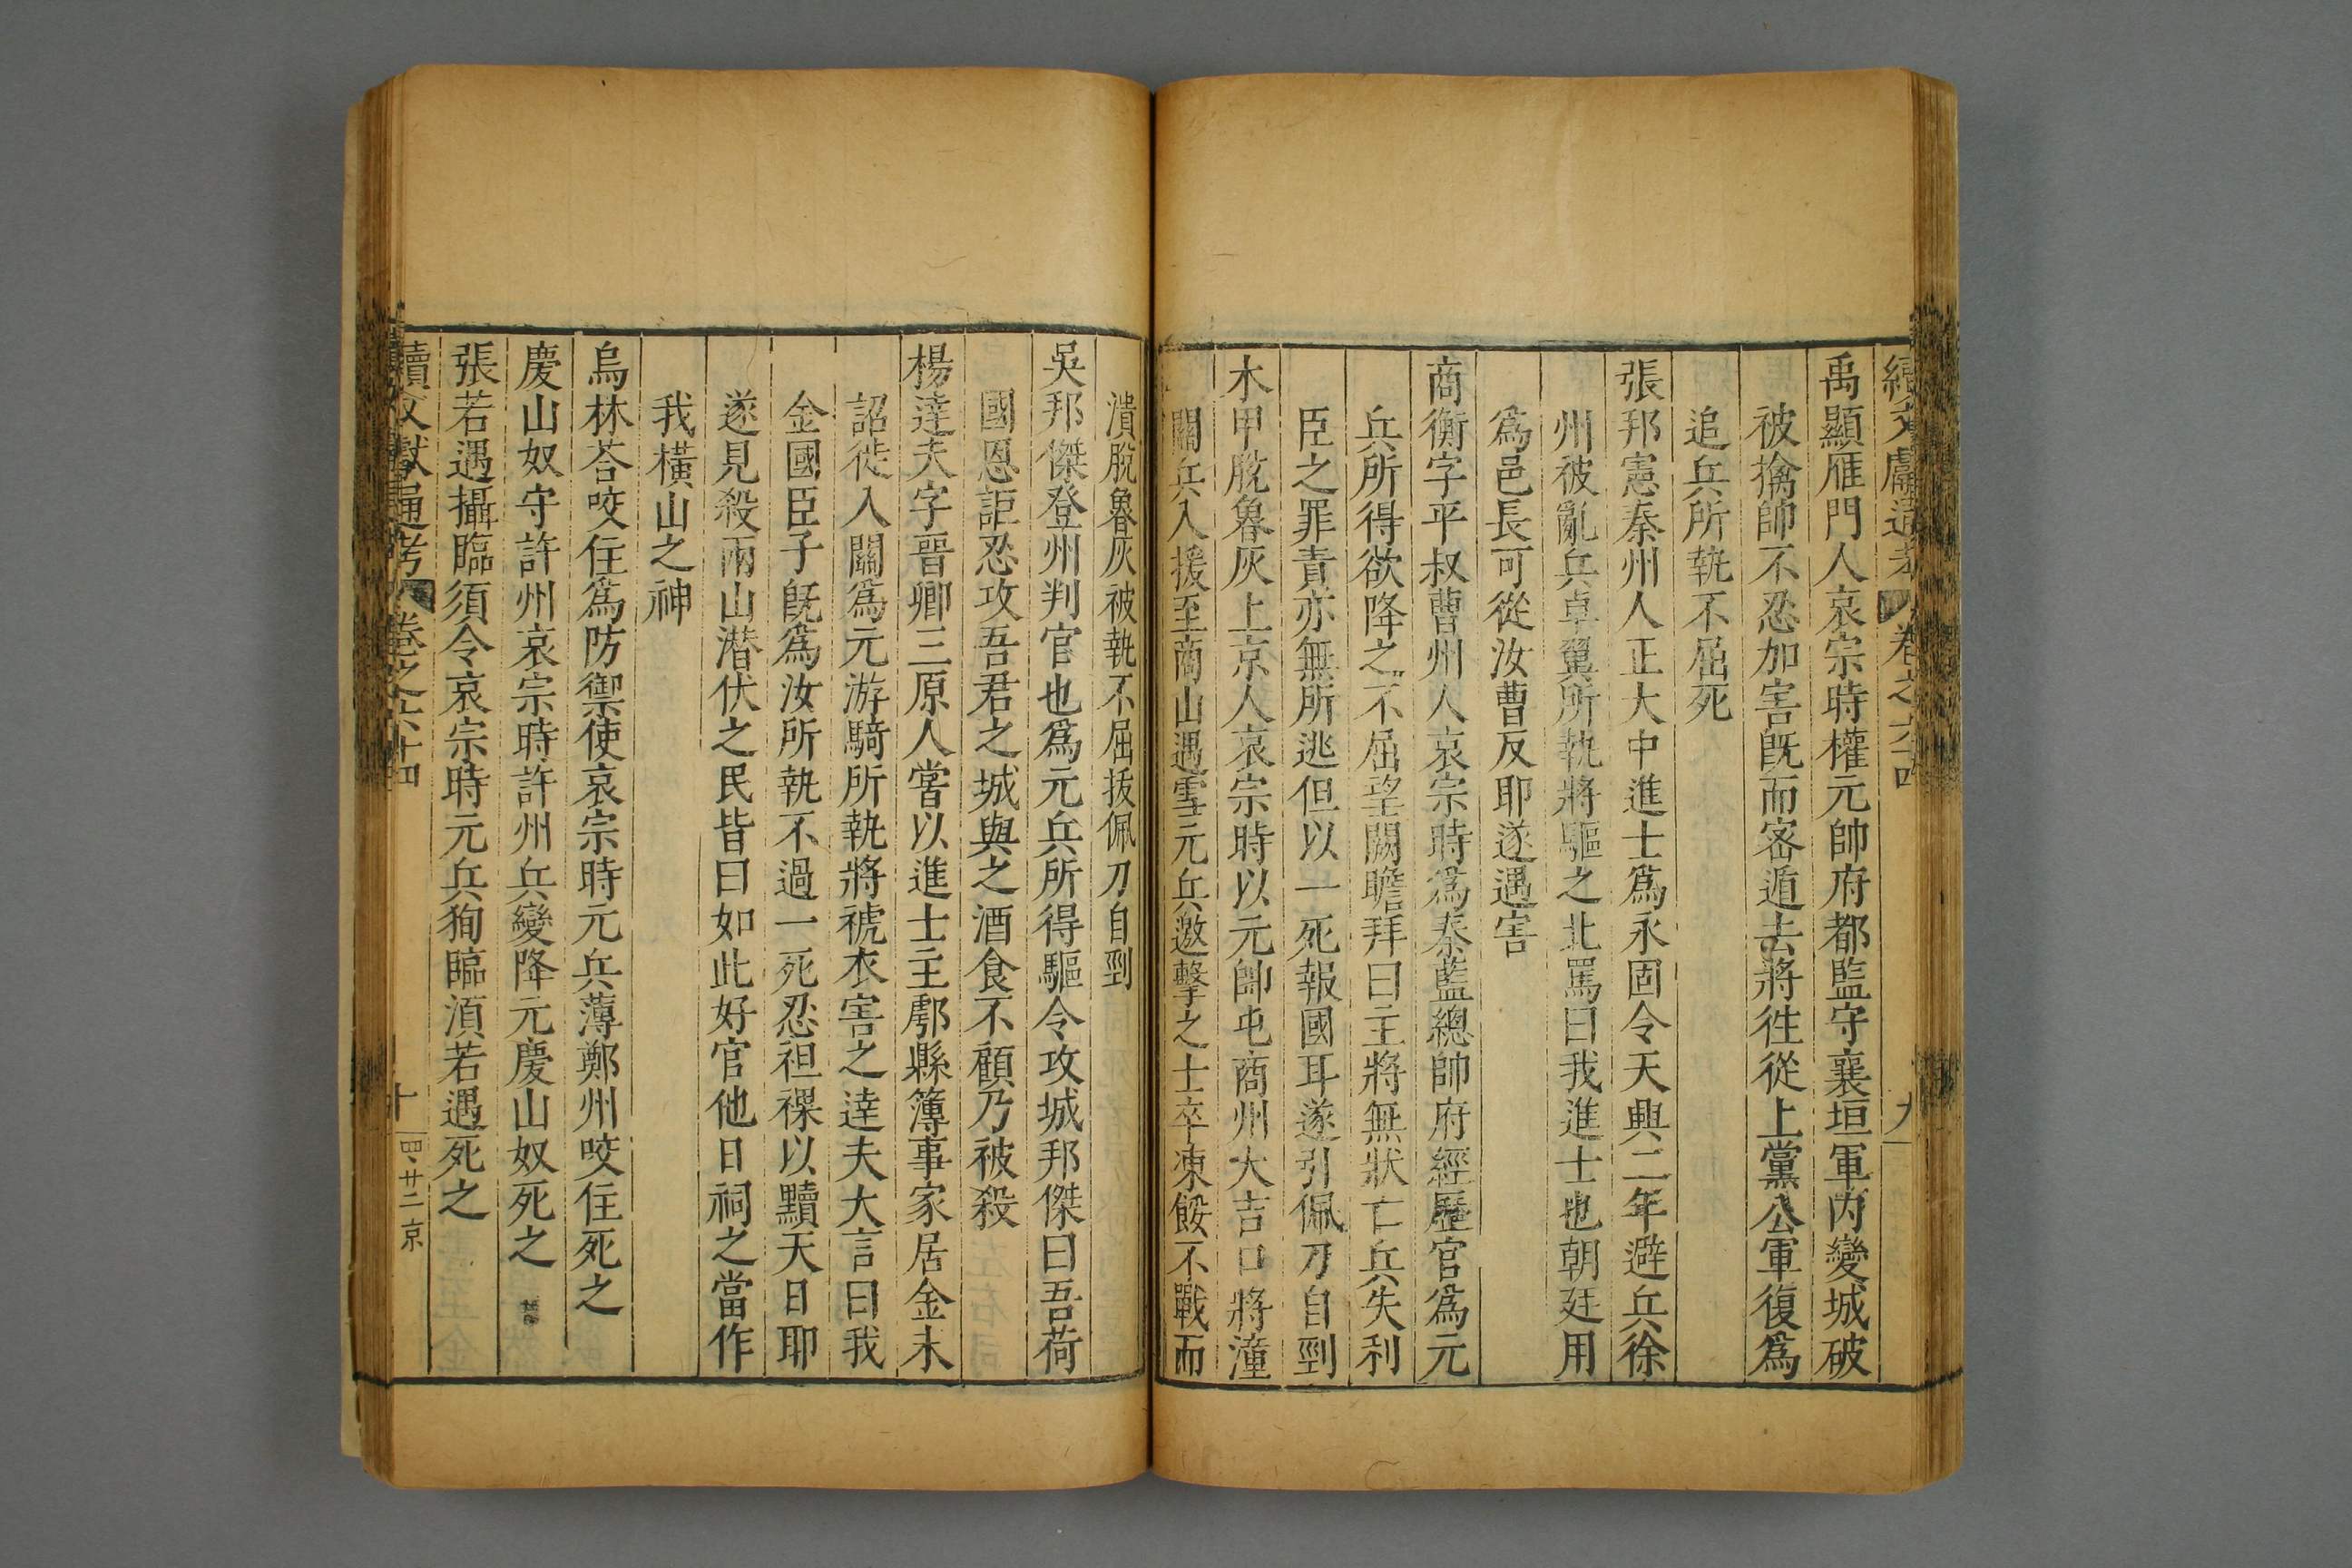 續文獻通考 卷之六十四 九
禹顯雁門人哀宗時權元帥府都監守襄垣軍內變城破
被擒帥不忍加害旣而密遁去將徃從上黨公軍復爲
追兵所執不屈死
張邦憲秦州人正大中進士爲永固令天興二年避兵徐
州被亂兵卓翼所執將驅之北罵曰我進士也朝廷用
爲邑長可從汝曹反耶遂遇害
商衡字平叔曹州人哀宗時爲秦藍總帥府經歷官爲元
兵所得欲降之不屈望闕瞻拜曰主將無狀亡兵失利
臣之罪責亦無所逃但以一死報國耳遂引佩刀自剄
木甲脫魯灰上京人哀宗時以元帥屯商州大吉口將潼
關兵入援至商山遇雪元兵邀擊之士卒凍餒不戰而
潰脫魯灰被執不屈拔佩刀自剄
吳邦傑登州判官也爲元兵所得驅令攻城邦傑曰吾荷
國恩詎忍攻吾君之城與之酒食不顧乃被殺
楊達夫字晉卿三原人嘗以進士主鄠縣簿事家居金末
詔徙入關爲元游騎所執將褫衣害之達夫大言曰我
金國臣子旣爲汝所執不過一死忍袒裸以黷天日耶
遂見殺兩山潜伏之民皆曰如此好官他日祠之當作
我橫山之神
烏林荅咬住爲防禦使哀宗時元兵薄鄭州咬住死之
慶山奴守許州哀宗時許州兵變降元慶山奴死之
張若遇攝臨須令哀宗時元兵狥臨湏若遇死之
續文獻通考 卷之六十四 十 四、廿二 京